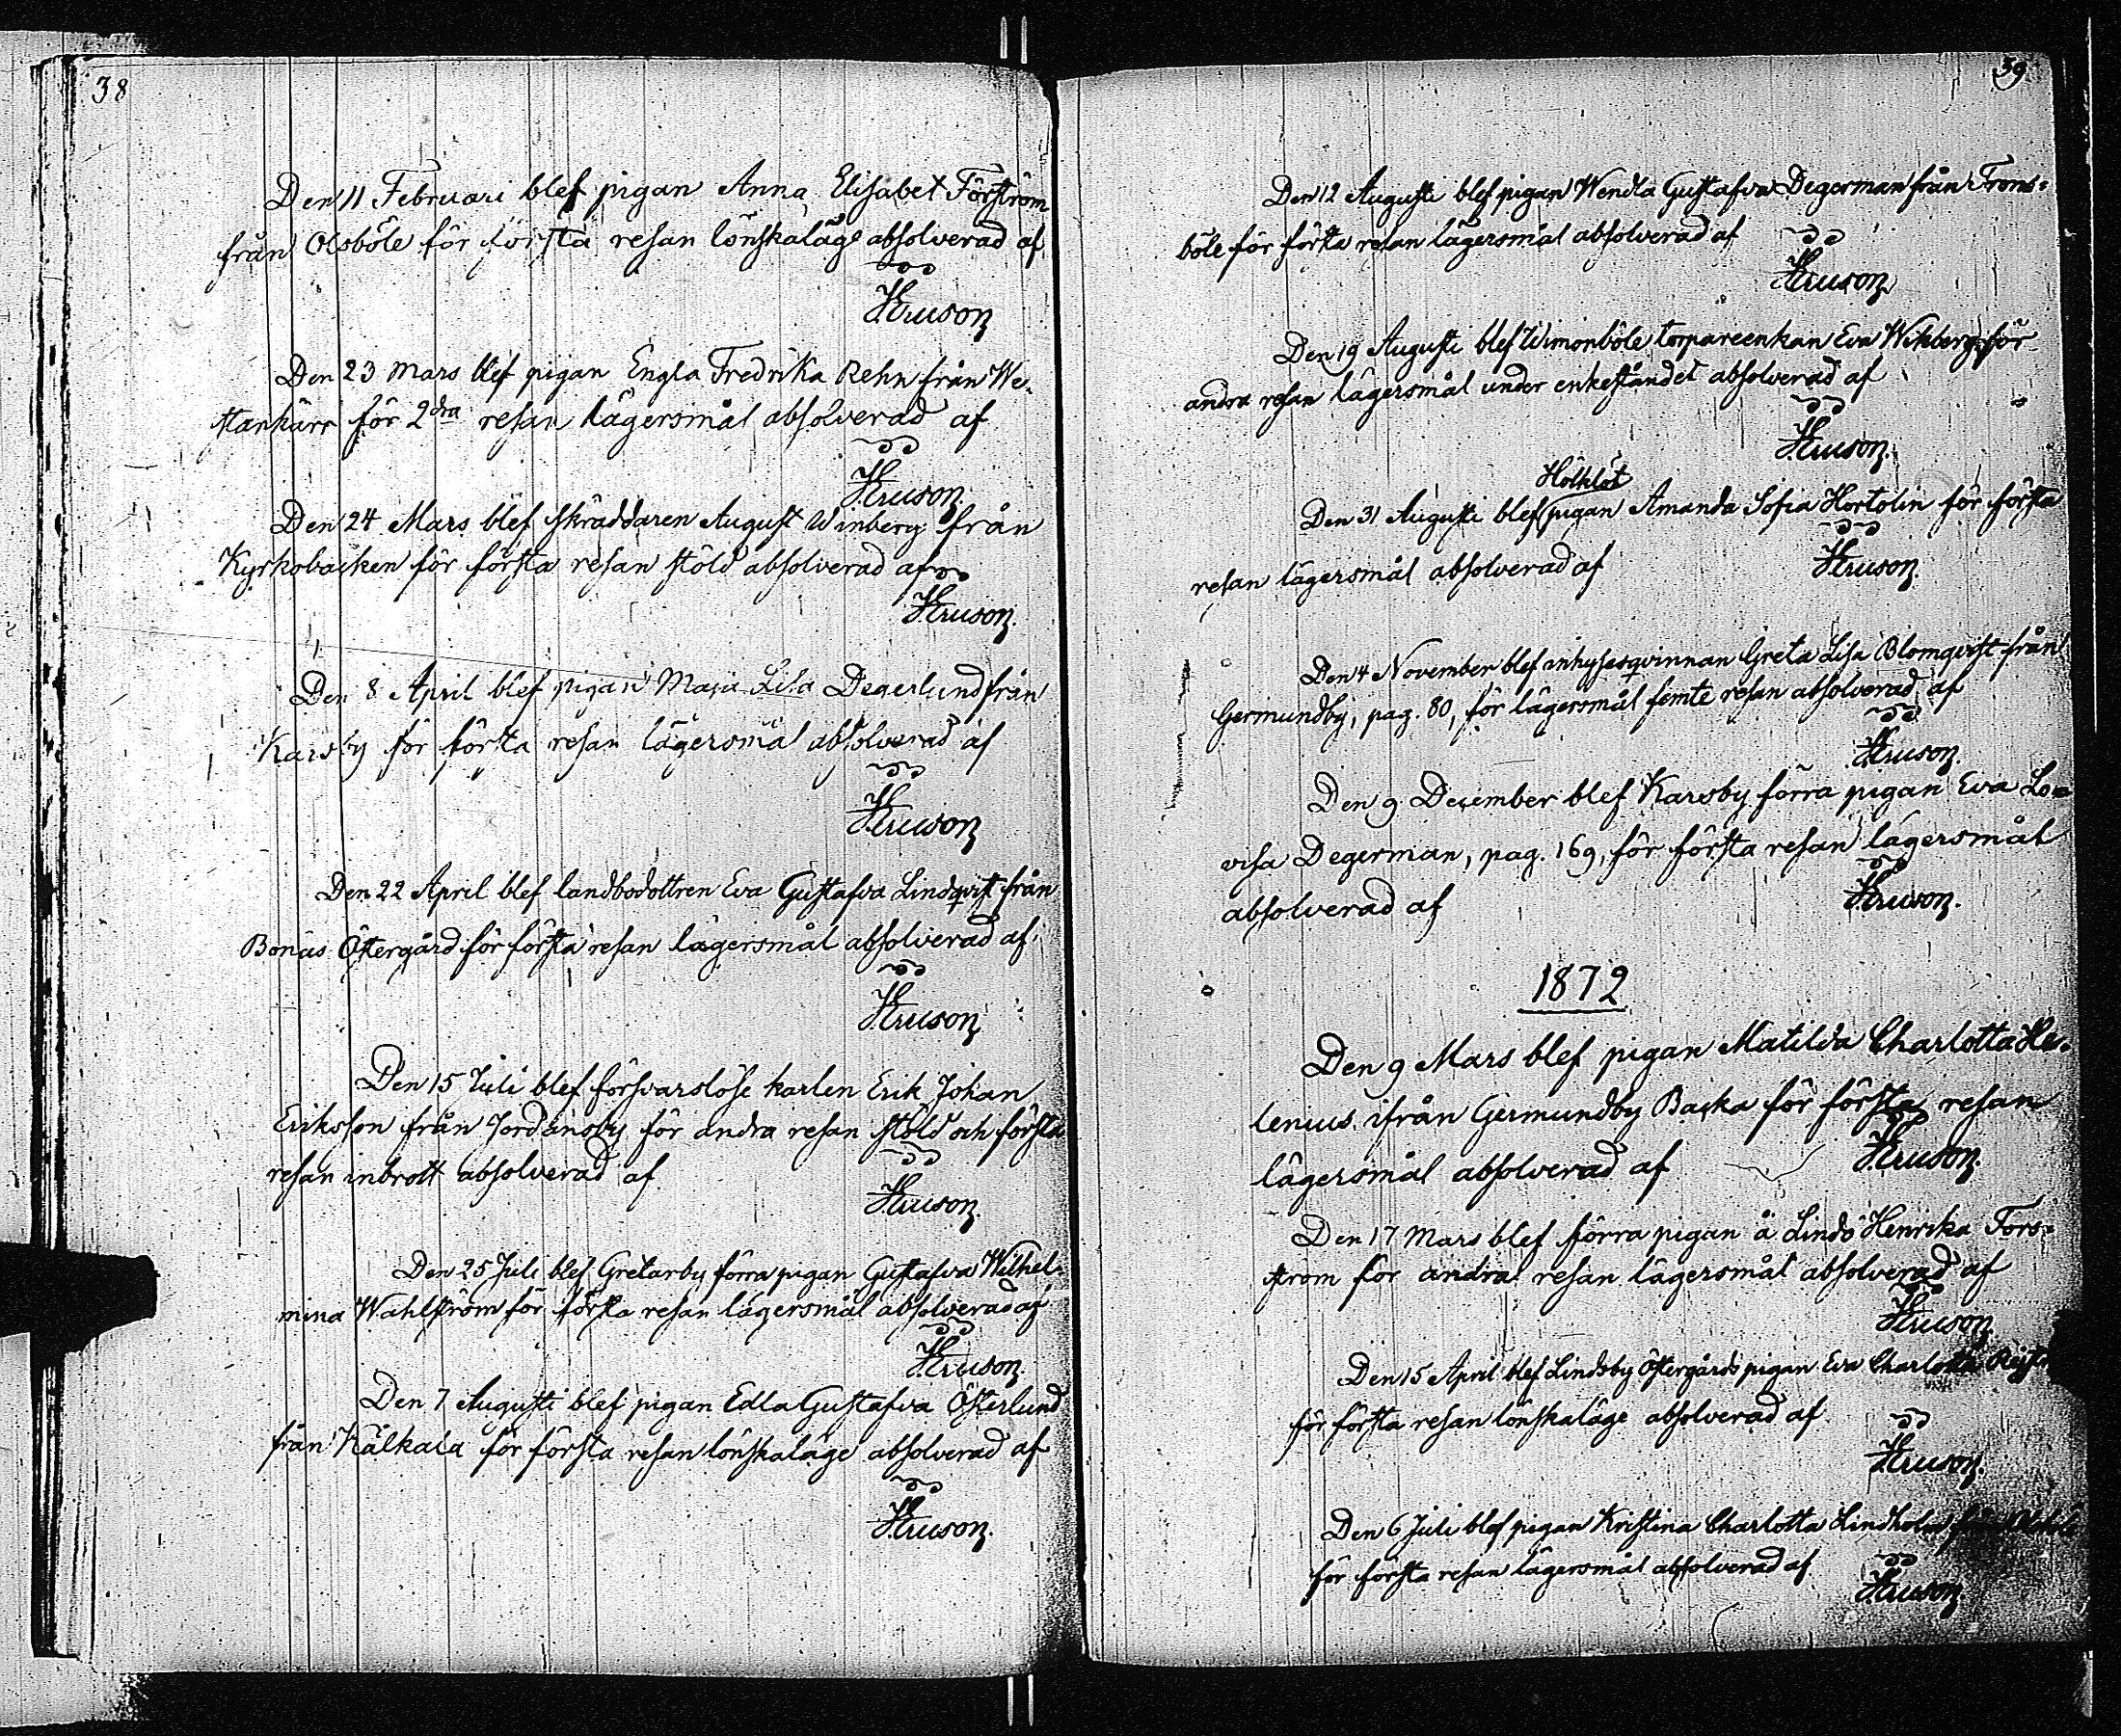 38
Den 11 Februari blef pigan Anna Elisabet Förström
från Olsböle för första resan lönskaläge absolverad af
Kruson
Den 23 Mars blef pigan Engla Fredrika Rehn från We-
starkärr för 2dra resan lägersmål absolverad af
Kruson.
Den 24 Mars blef skräddaren August Winberg från
Kyrkobacken för första resan stöld absolverad af
Kruson.
Den 8 April blef pigan Maja Lisa Degerlund från
Karsby för första resan lägersmål absolverad af
Kruson
Den 22 April blef landbodottren Eva Gustafva Lindqvist från
Bonäs Östergård för första resan lägersmål absolverad af
Kruson
Den 15 Juli blef försvarslöse karlen Erik Johan
Eriksson från Jordansby för andra resan stöld och första
resan inbrott absolverad af
Kruson.
Den 25 Juli blef Gretarby förra pigan Gustafva Wilhel-
mina Wahlström för första resan lägersmål absolverad af
Kruson.
Den 7 Augusti blef pigan Edla Gustafva Österlund
från Kälkala för första resan lönskaläge absolverad af
Kruson.
39
Den 12 Augusti blef pigan Wendla Gustafva Degerman från Trons-
böle för första resan lägersmål absolverad af
Kruson
Den 19 Augusti blef Wimonböle torpareenkan Eva Wikberg för
andra resan lägersmål under enkeståndet absolverad af
Kruson.
Hölklöt
Den 31 Augusti blef pigan Amanda Sofia Hortolin för första
resan lägersmål absolverad af
Kruson
Den 4 November blef inhysesqvinnan Greta Lisa Blomqvist från
Germundby, pag. 80, för lägersmål femte resan absolverad af
Kruson.
Den 9 December blef Karsby förra pigan Eva Lo-
visa Degerman, pag. 169, för första resan lägersmål
absolverad af
Kruson.
1872
Den 9 Mars blef pigan Matilda Charlotta He-
lenius ifrån Germundby Backa för första resan
lägersmål absolverad af
Kruson.
Den 17 Mars blef förra pigan å Lindö Henrika Fors-
ström för andra resan lägersmål absolverad af
Kruson
Den 15 April blef Lindsby Östergårds pigan Eva Charlotta
för första resan lönskaläge absolverad af
Kruson.
Den 6 Juli blef pigan Kristina Charlotta Lindholm från
för första resan lägersmål absolverad af
Kruson.